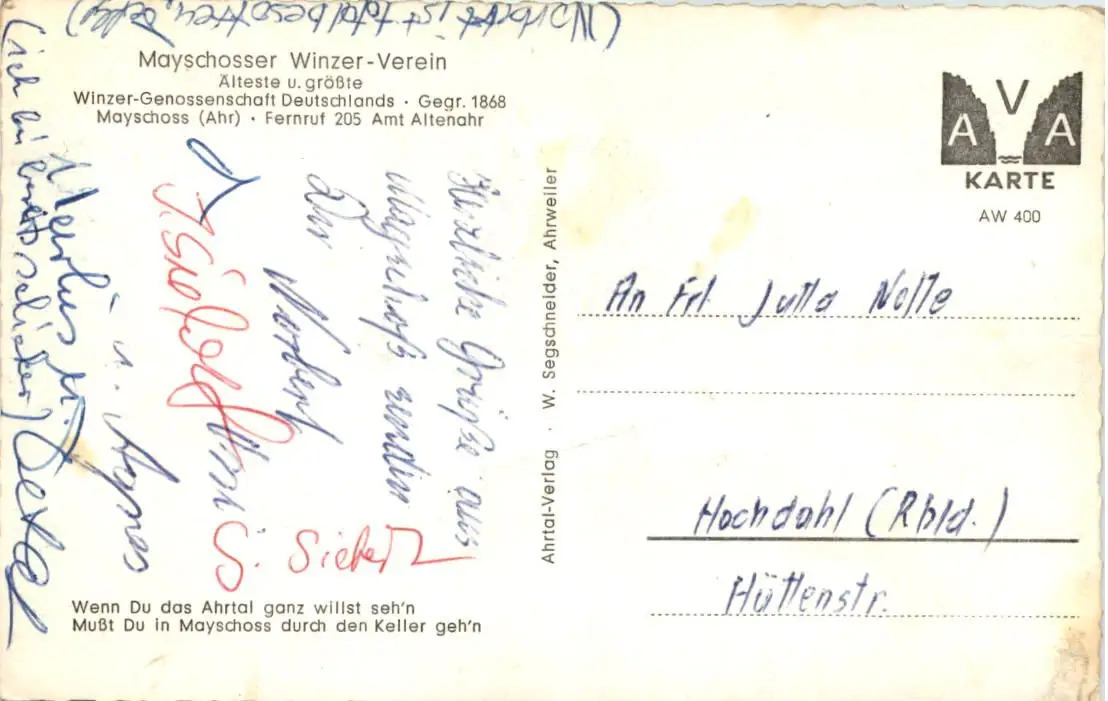 (Norbert ist total besoffen, Detle)
Mayschosser Winzer-Verein
Älteste u. größte
Winzer-Genossenschaft Deutschlands · Gegr. 1868
Mayschoss (Ahr) · Fernruf 205 Amt Altenahr
Herzliche Grüße aus
Mayschoß senden
Dir
Norbert
S. Siebert
u. Agnes
(ich bin
Wenn Du das Ahrtal ganz willst seh'n
Mußt Du in Mayschoss durch den Keller geh'n
Ahrtal-Verlag · W. Segschneider, Ahrweiler
AVA
KARTE
AW 400
An Frl Jutta Nolte
Hochdahl (Rhld.)
Hüttenstr.